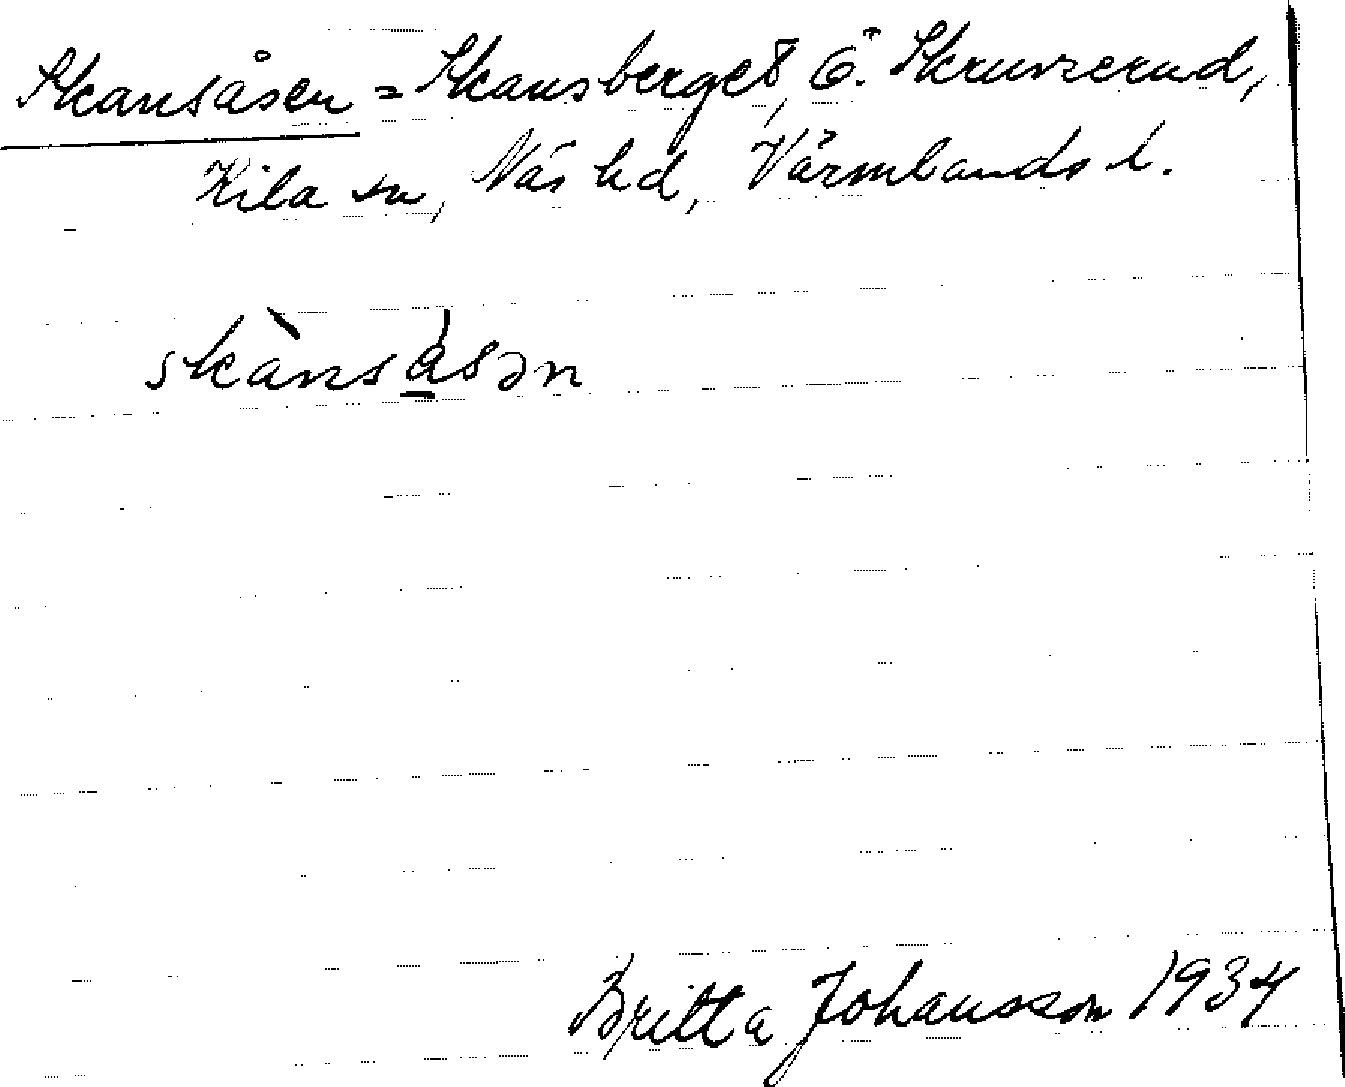 Skansåsen = Skansberget, Ö. Skruvserud,
Kila sn, Näs hd, Värmlands l.
skànsåsən
Britta Johansson 1934